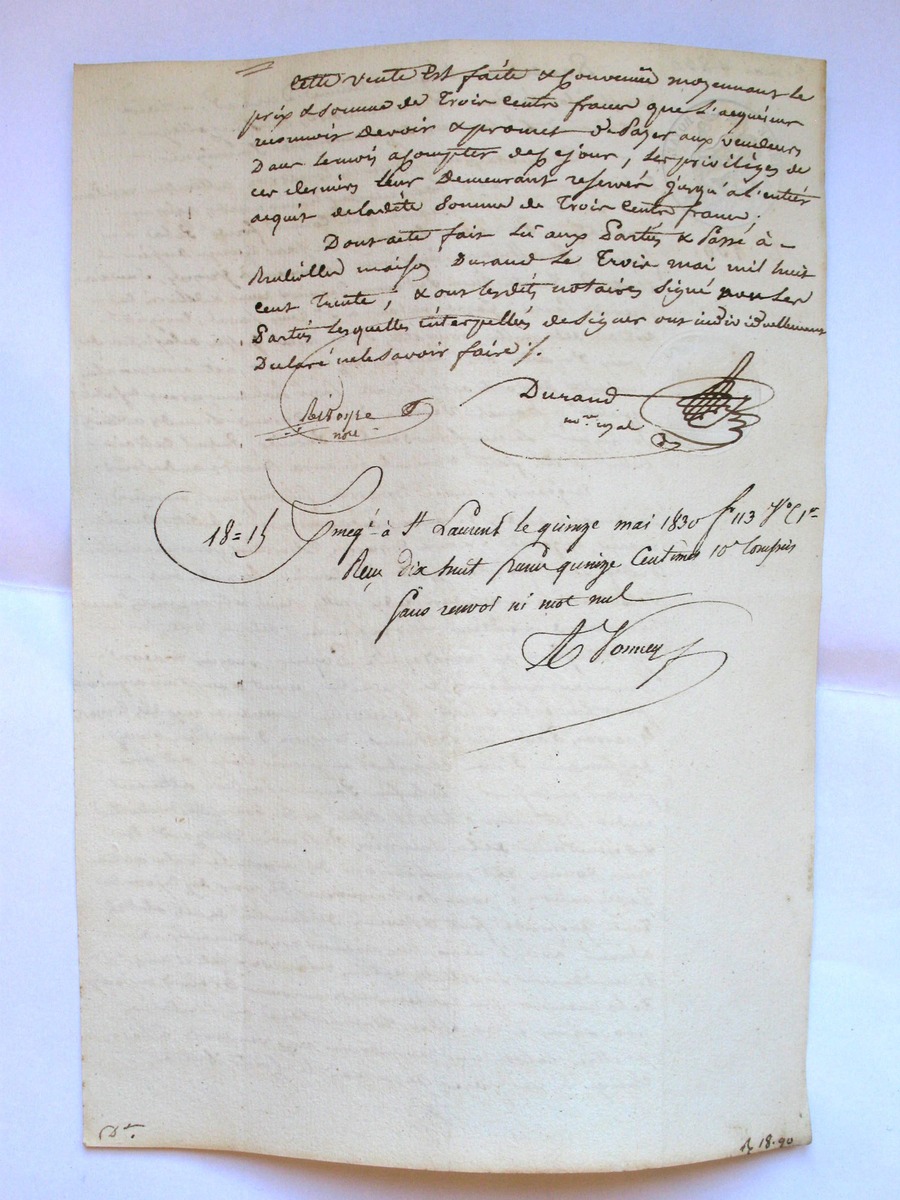 Cette vente Est faite & Convenuë moyennant le
prix & Somme de Trois Cents francs que l'acquéreur
reconnoit Devoir & promet de Payer aux vendeurs
Dans le mois a Compter de Ce jour, les privilèges de
ces derniers leur Demeurant reservés jusqu'à l'entier
acquit de la dite Somme de Trois Cents francs.
Dont acte fait Lû aux Parties & Passé à
maison Durand Le Trois mai mil huit
cent Trente; & ont lesdits notaires Signé non les
Parties lesquelles interpellées de Signer ont individuellement
Déclaré ne le Savoir faire ./.
nore
Durand
nre royal
18=15
Enregé à St Laurent le quinze mai 1830 fo 113 Vo C 1re
Reçu dix huit francs quinze Centimes 10e Compris
Sans renvoi ni mot nul
Dd.
18.90